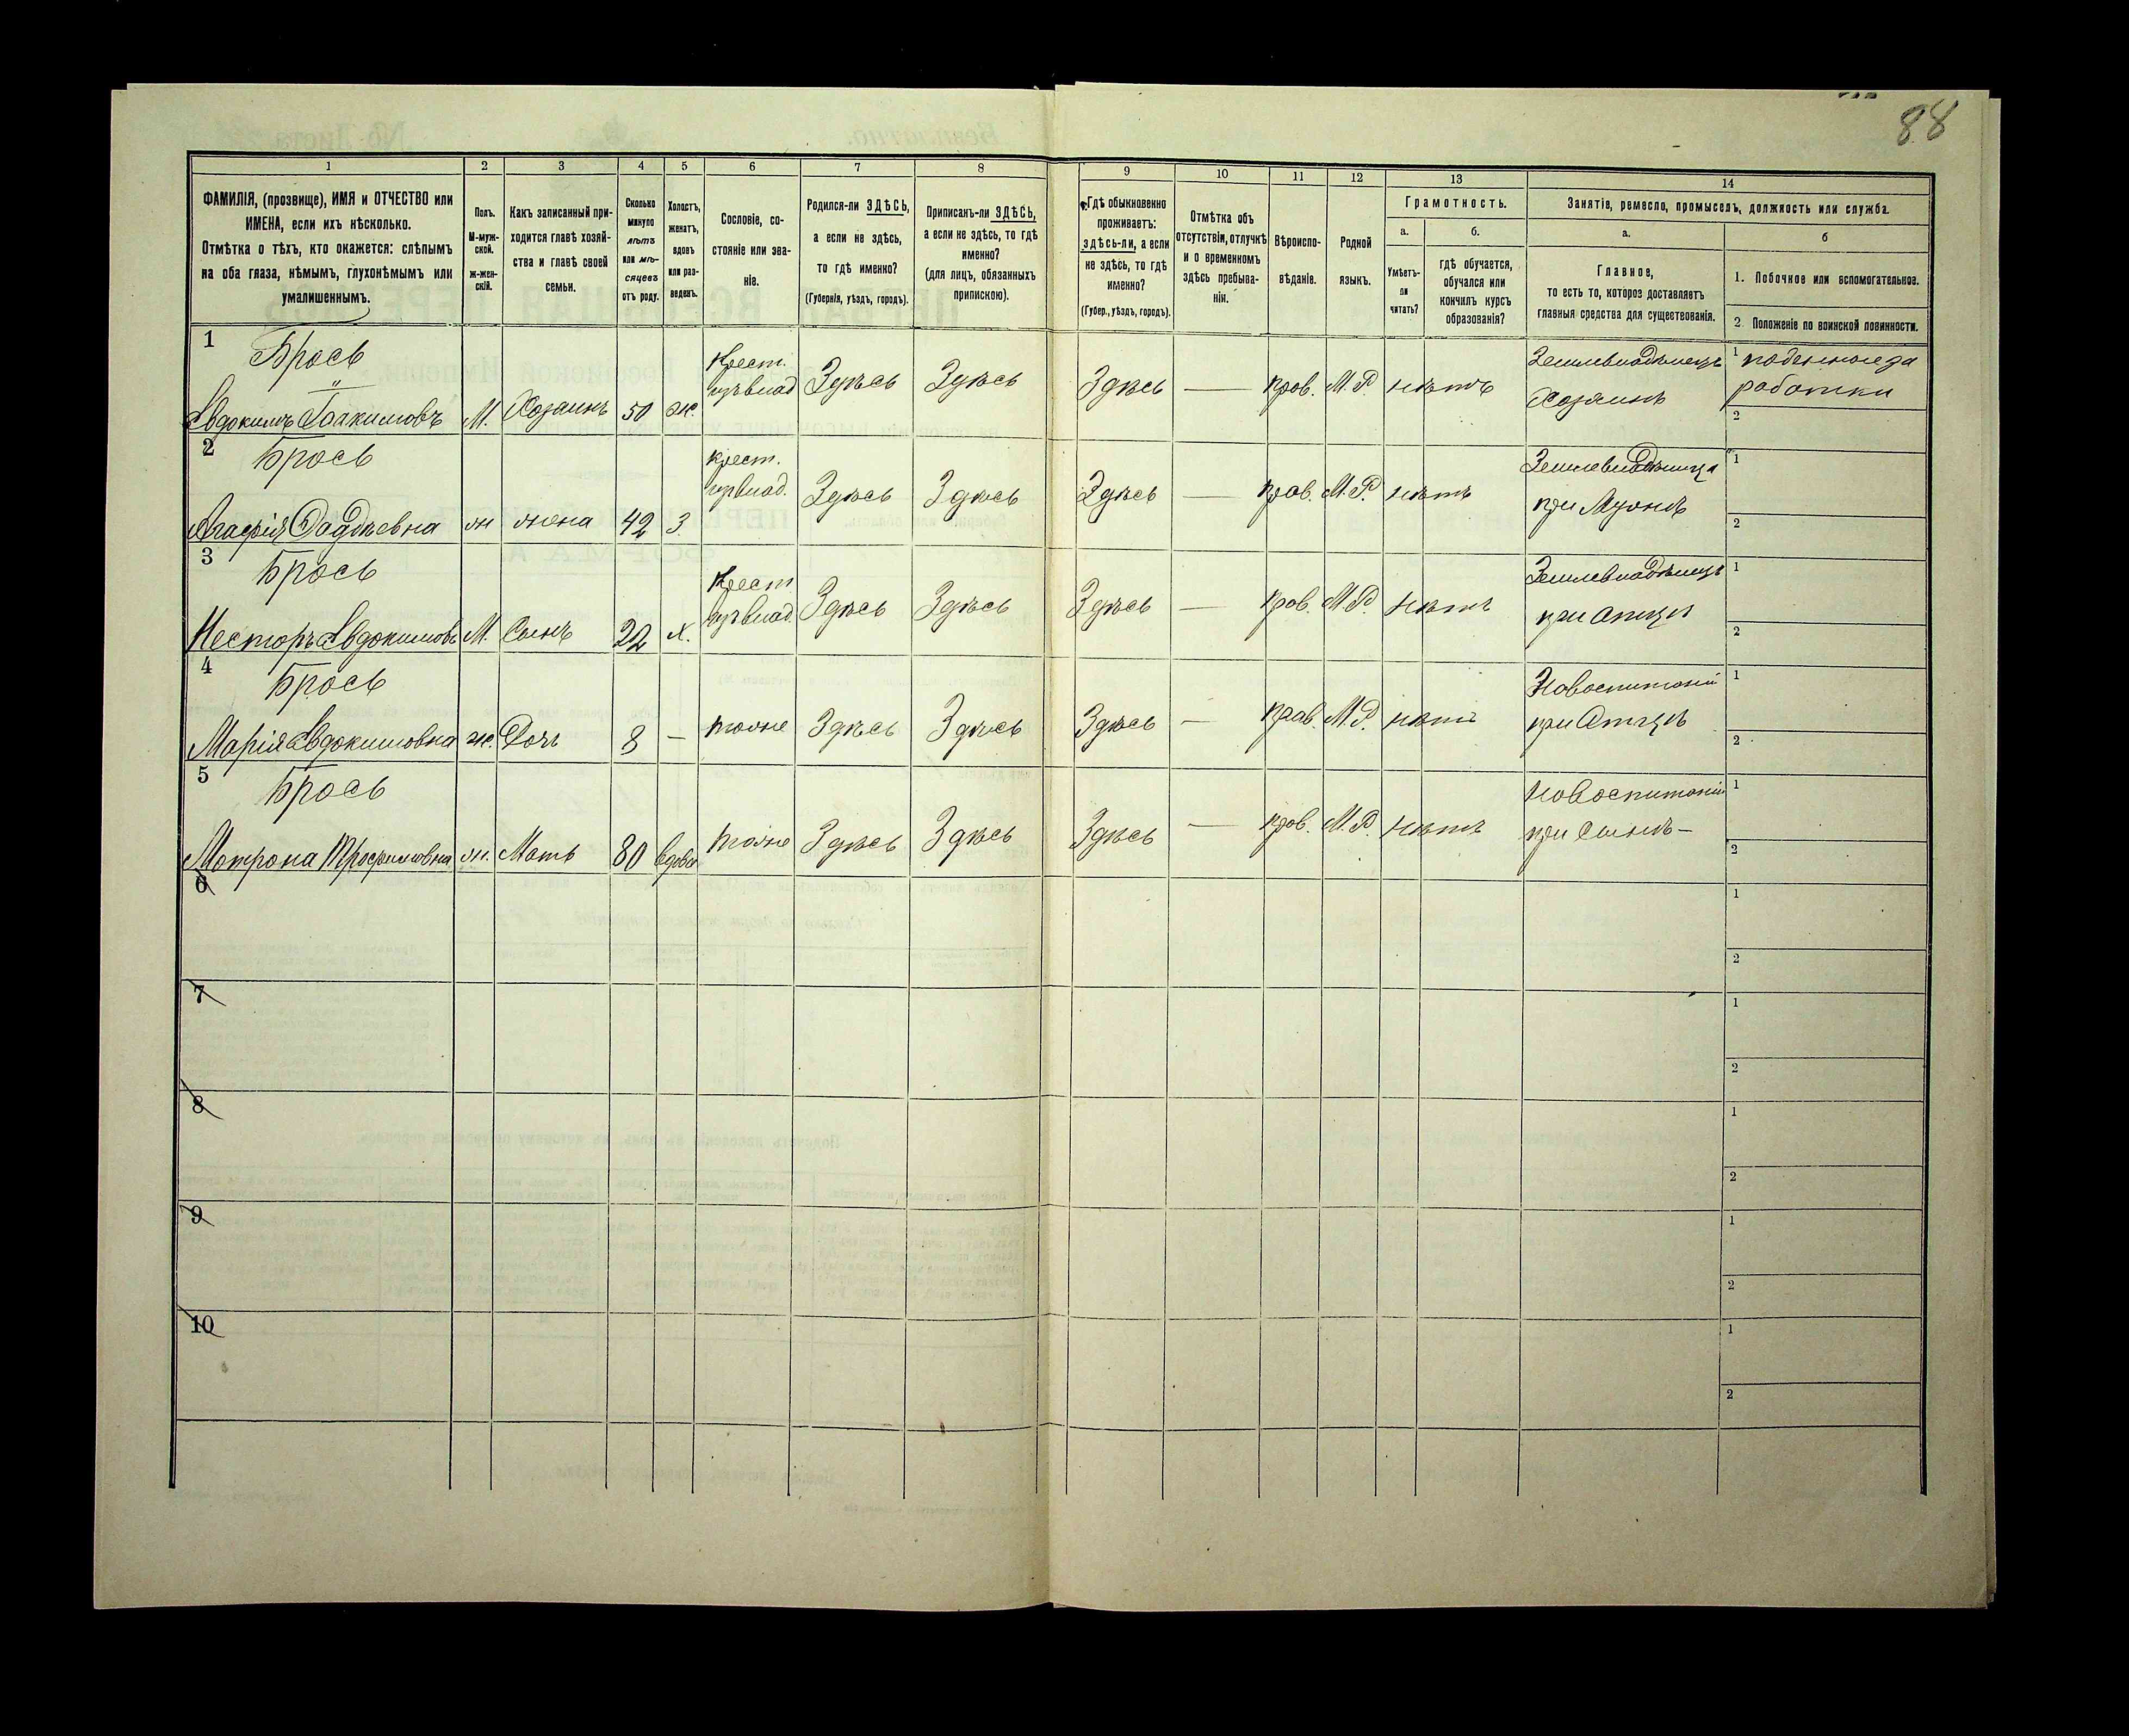 88
1
2
3
4
5
6
7
8
ФАМИЛІЯ, (прозвище), ИМЯ и ОТЧЕСТВО или
ИМЕНА, если ихъ нѣсколько.
Отмѣтка о тѣхъ, кто окажется: слѣпымъ
на оба глаза, нѣмымъ, глухонѣмымъ или
умалишеннымъ.
Полъ.
М-муж-
ской.
ж-жен-
скій.
Какъ записанный при-
ходится главѣ хозяй-
ства и главѣ своей
семьи.
Сколько
минуло
лѣтъ
или мѣ-
сяцевъ
отъ роду.
Холостъ,
женатъ,
вдовъ
или раз-
веденъ.
Сословіе, со-
стояніе или зва-
ніе.
Родился-ли ЗДѢСЬ,
а если не здѣсь,
то гдѣ именно?
(Губернія, уѣздъ, городъ).
Приписанъ-ли ЗДѢСЬ,
а если не здѣсь, то гдѣ
именно?
(для лицъ, обязанныхъ
припискою).
9
10
11
12
13
14
Гдѣ обыкновенно
проживаетъ:
здѣсь-ли, а если
не здѣсь, то гдѣ
именно?
(Губер., уѣздъ, городъ).
Отмѣтка объ
отсутствіи, отлучкѣ
и о временномъ
здѣсь пребыва-
ніи.
Вѣроиспо-
вѣданіе.
Родной
языкъ.
Грамотность.
а.
б.
Умѣетъ-
ли
читать?
гдѣ обучается,
обучался или
кончилъ курсъ
образованія?
Занятіе, ремесло, промыселъ, должность или служба.
а.
б
Главное,
то есть то, которое доставляетъ
главныя средства для существованія.
1. Побочное или вспомогательное.
2. Положеніе по воинской повинности.
1
Брось
Евдокимъ Іоакимовъ
М.
Хозяинъ
50
ж.
Крест.
Здѣсь
Здѣсь
Здѣсь
—
прав.
М.Р.
нѣтъ
Землевладѣлецъ
Хозяинъ
1
поденные за
работки
2
2
Брось
Агафія Фадѣевна
ж
жена
42
З.
крест.
Здѣсь
Здѣсь
Здѣсь
—
прав.
М.Р.
нѣтъ
Землевладѣлица
при Мужѣ
1
2
3
Брось
Несторъ Евдокимовъ
М.
Сынъ
22
х.
Крест
Здѣсь
Здѣсь
Здѣсь
—
прав.
М.Р.
нѣтъ
Землевладѣлецъ
при Отцѣ
1
2
4
Брось
Марія Евдокимовна
ж.
Дочь
8
—
тоже
Здѣсь
Здѣсь
Здѣсь
—
прав.
М.Р.
нѣтъ
при Отцѣ
1
2
5
Брось
Матрона Трофимовна
ж.
Мать
80
вдова
тоже
Здѣсь
Здѣсь
Здѣсь
—
прав.
М.Р.
нѣтъ
при Сынѣ—
1
2
6
1
2
7
1
2
8
1
2
9
1
2
10
1
2